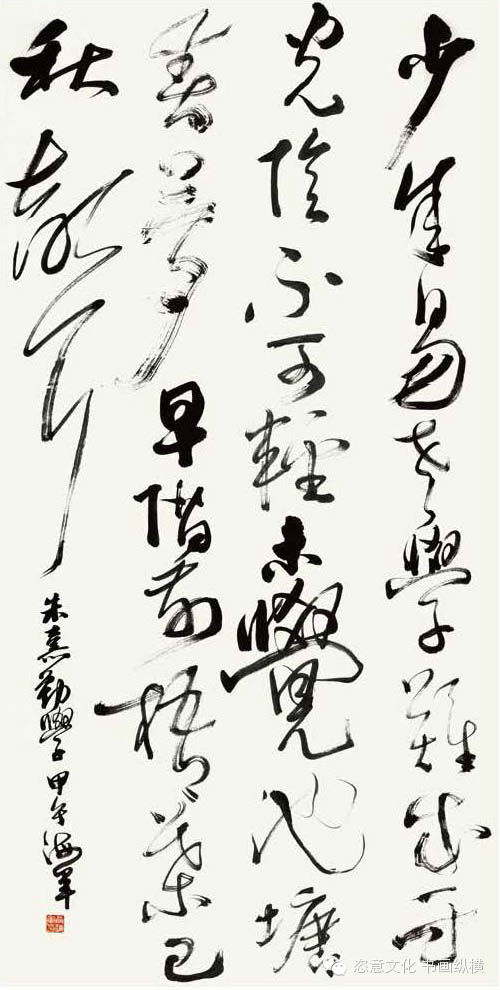 少年易老學難成一寸
光陰不可輕未覺池塘
春夢早階前梧葉已
秋聲
朱熹勸學甲午海軍
恣意文化 书画纵横